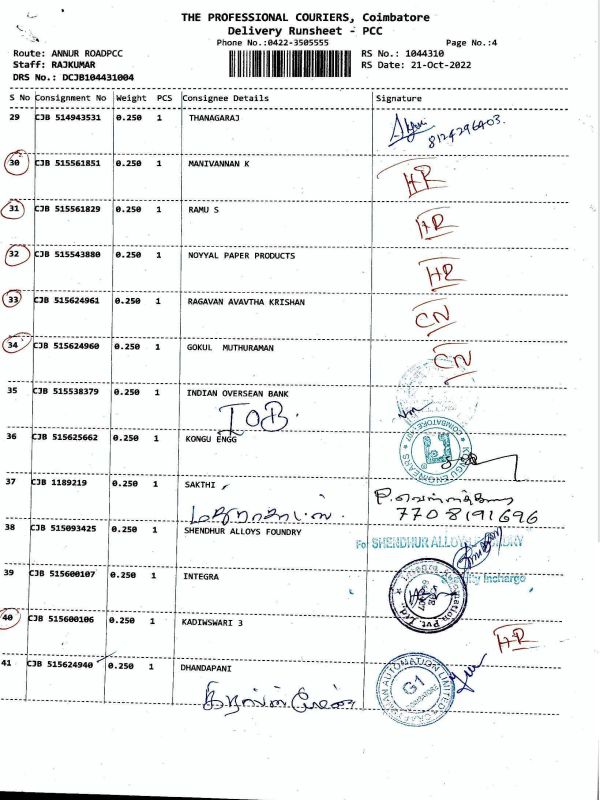 THE PROFESSIONAL COURIERS, Coimbatore
Delivery Runsheet - PCC
Phone No.:0422-3505555 Page No.:4
Route: ANNUR ROADPCC RS No.: 1044310
Staff: RAJKUMAR RS Date: 21-Oct-2022
DRS No.: DCJB104431004
S No Consignment No Weight PCS Consignee Details Signature
29 CJB 514943531 0.250 1 THANAGARAJ
8124296403.
30 CJB 515561851 0.250 1 MANIVANNAN K HR
31 CJB 515561829 0.250 1 RAMU S HR
32 CJB 515543880 0.250 1 NOYYAL PAPER PRODUCTS HR
33 CJB 515624961 0.250 1 RAGAVAN AVAVTHA KRISHAN CN
34 CJB 515624960 0.250 1 GOKUL MUTHURAMAN CN
35 CJB 515538379 0.250 1 INDIAN OVERSEAN BANK
IOB.
36 CJB 515625662 0.250 1 KONGU ENGG
37 CJB 1189219 0.250 1 SAKTHI
7708191696
38 CJB 515093425 0.250 1 SHENDHUR ALLOYS FOUNDRY
For SHENDHUR ALLOYS FOUNDRY
Security Incharge
39 CJB 515600107 0.250 1 INTEGRA
40 CJB 515600106 0.250 1 KADIWSWARI 3 HR
41 CJB 515624940 0.250 1 DHANDAPANI
G1